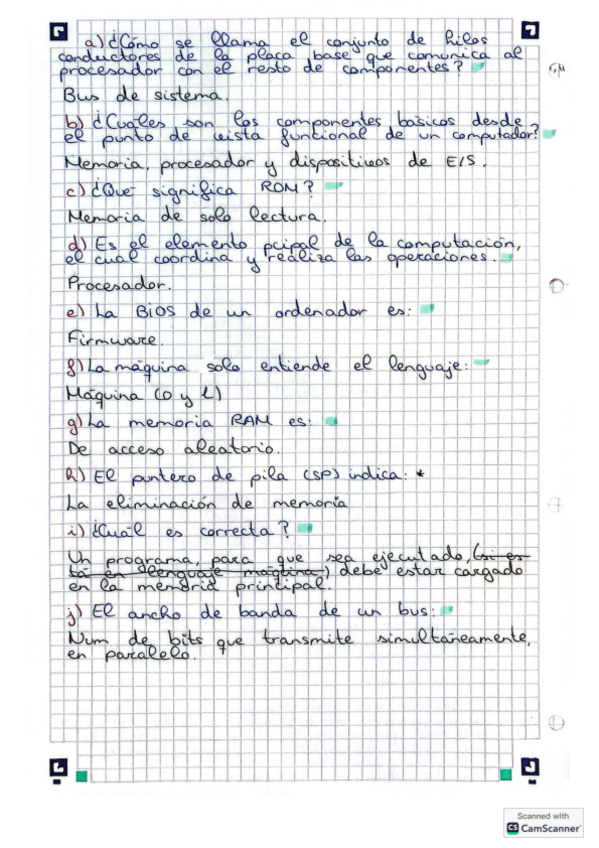 a) ¿Cómo se llama el conjunto de hilos
conductores de la placa base que comunica al
procesador con el resto de componentes?
Bus de sistema.
b) ¿Cuáles son los componentes básicos desde
el punto de vista funcional de un computador?
Memoria, procesador y dispositivos de E/S.
c) ¿Qué significa ROM?
Memoria de solo lectura.
d) Es el elemento pcipal de la computación,
el cual coordina y realiza las operaciones.
Procesador.
e) La BIOS de un ordenador es:
Firmware.
f) La máquina solo entiende el lenguaje:
Máquina (0 y 1)
g) La memoria RAM es:
De acceso aleatorio.
h) El puntero de pila (SP) indica: *
La eliminación de memoria
i) ¿Cuál es correcta?
Un programa, para que sea ejecutado, (si es
tá en lenguaje máquina,) debe estar cargado
en la memoria principal.
j) El ancho de banda de un bus:
Num de bits que transmite simultáneamente,
en paralelo.
Scanned with
CS CamScanner